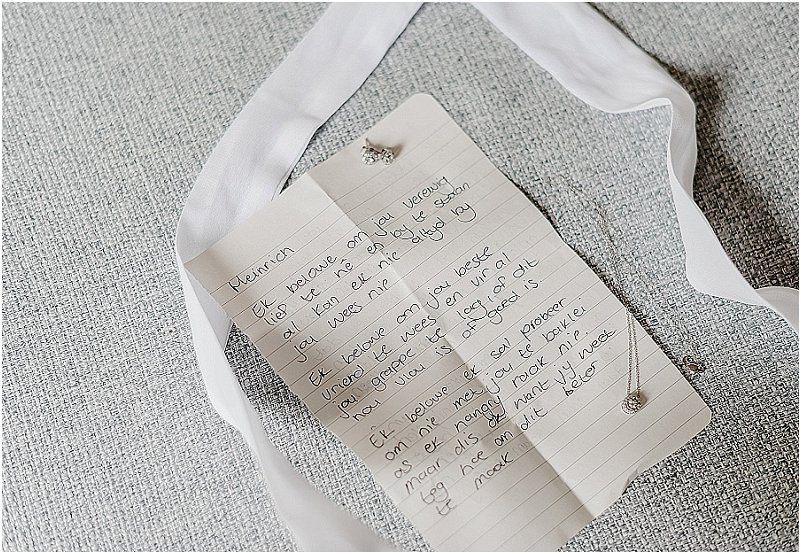 Meinrich
Ek belowe om jou verewig
lief te hê en by te staan
al kan ek nie altyd by
jou wees nie
Ek belowe om jou beste
vriend te wees en vir al
jou grappe te lag, of dit
nou flou is of goed is
Ek belowe ek sal probeer
om nie met jou te baklei
as ek hangry raak nie.
Maar dis ok want jy weet
tog hoe om dit beter
te maak